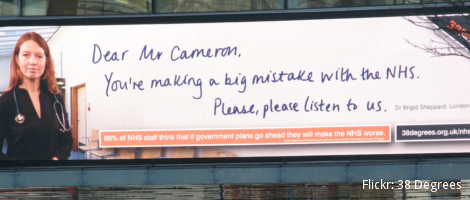 Dear Mr Cameron,
You're making a big mistake with the NHS.
Please, please listen to us.
Dr Brigid Sheppard, London
66% of NHS staff think that if government plans go ahead they will make the NHS worse.
38degrees.org.uk/nhs
Flickr: 38 Degrees